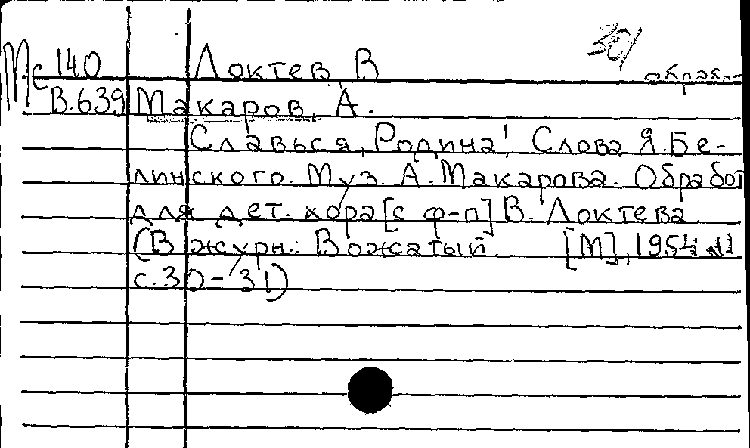 Мс 140 Локтев В 301 обраб.
В.639 Макаров, А.
Славься, Родина! Слова Я. Бе-
линского. Муз. А. Макарова. Обработ
для дет. хора [с ф-п] В. Локтева
(В журн.: Вожатый. [М], 1954
с. 30-31)